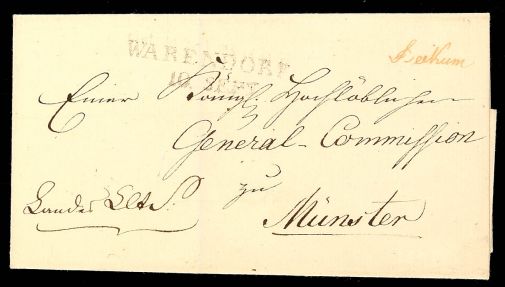 WARENDORF
10. SEPT.
Beckum
Einer Königl. Hochlöblichen
General-Commission
zu
Münster
Landes